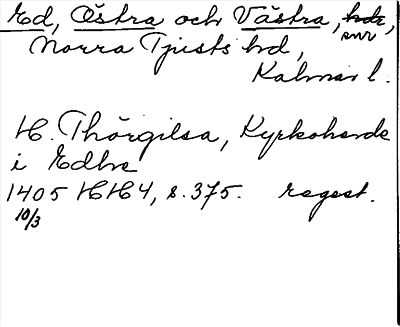 Ed, Östra och Västra, hde, snr
Norra Tjusts hd,
Kalmar l.
H. Thörgilsa, Kyrkoherde
i Edhe
1405 HH4, s. 375. regest.
10/3